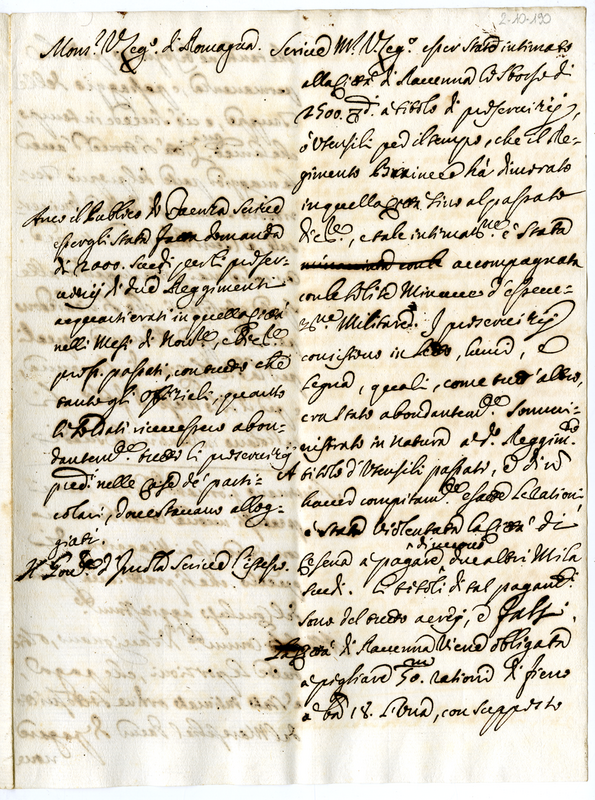 2-10-190
Mons.r V. Leg.o di Romagna. Scrive M.r V. Leg.o esser stato intimato
alla Città di Ravenna lo sborso di
2500. a titolo di preserviggi,
ò Utensili per il tempo, che il Re-
gimento ha dimorato
in quella Città sino al passato
Xbre, e tale intimat.ne è stata
accompagnata
con le solite Minaccie d'essecu-
z.ne Militare. I preserviggi
consistono in letto, lume, e
Legna, quali, come tutt'altro,
era stato abondantem.te Sommi-
nistrato in natura a d.o Reggim.to
A titolo d'Utensili passato, e di
haver compitam.te Le Ration
è stata violentata la Città di
Cesena a pagare di nuovo due altri Mila
scudi. Li titoli di tal pagam.to
sono del tutto aerei, e falsi.
La Città di Ravenna viene obligata
a pigliare 50. rationi di fieno
a 18. Libra, con supposto
Anco il Publico di Faenza scrive
essergli stata domanda
di 2000. scudi, per li preser-
viggi di due Reggimenti
acquartierati in quella Città
nelli Mesi di Nov.e, e Xbre
pross. passati, con tutto che
tanto gli Officiali, quanto
li Soldati ricevessero abon-
dantem.te tutti li preserviggi
nelle Case de' parti-
colari, dove stavano allog-
giati.
Il Gov.re d'Imola scrive l'istesso.